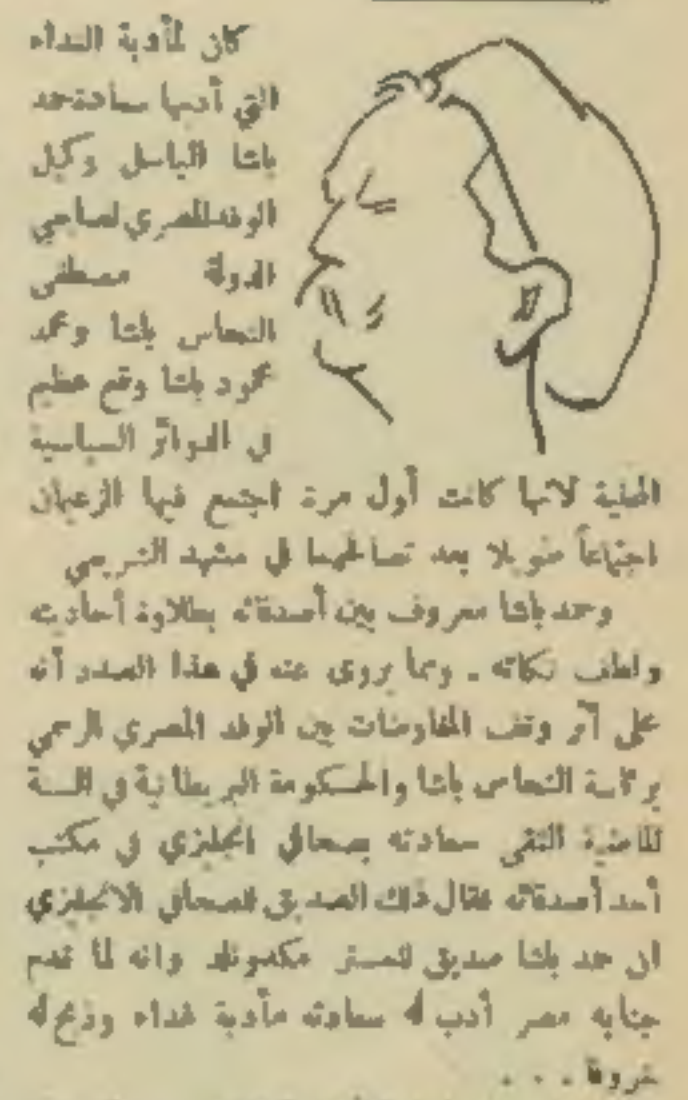 كان لمأدبة الغداء
التي أدبها سعادة حمد
باشا الباسل وكيل
الوفد المصري لصاحبي
الدولة مصطفى
النحاس باشا ومحمد
محمود باشا وقع عظيم
في الدوائر السياسية
المحلية لانها كانت أول مرة اجتمع فيها الزعيمان
اجتماعاً طويلا بعد تصالحهما في مشهد الشريعي
وحمد باشا معروف بين أصدقائه بطلاوة أحاديثه
ولطف نكاته . ومما يروى عنه في هذا الصدد أنه
على أثر وقف المفاوضات بين الوفد المصري الرسمي
برئاسة النحاس باشا والحكومة البريطانية في السنة
الماضية التقى سعادته بصحافي انجليزي في مكتب
أحد أصدقائه فقال ذلك الصديق للصحافي الانجليزي
ان حمد باشا صديق للمستر مكدونلد وانه لما قدم
جنابه مصر أدب له سعادته مأدبة غداء وذبح له
خروفا . . .